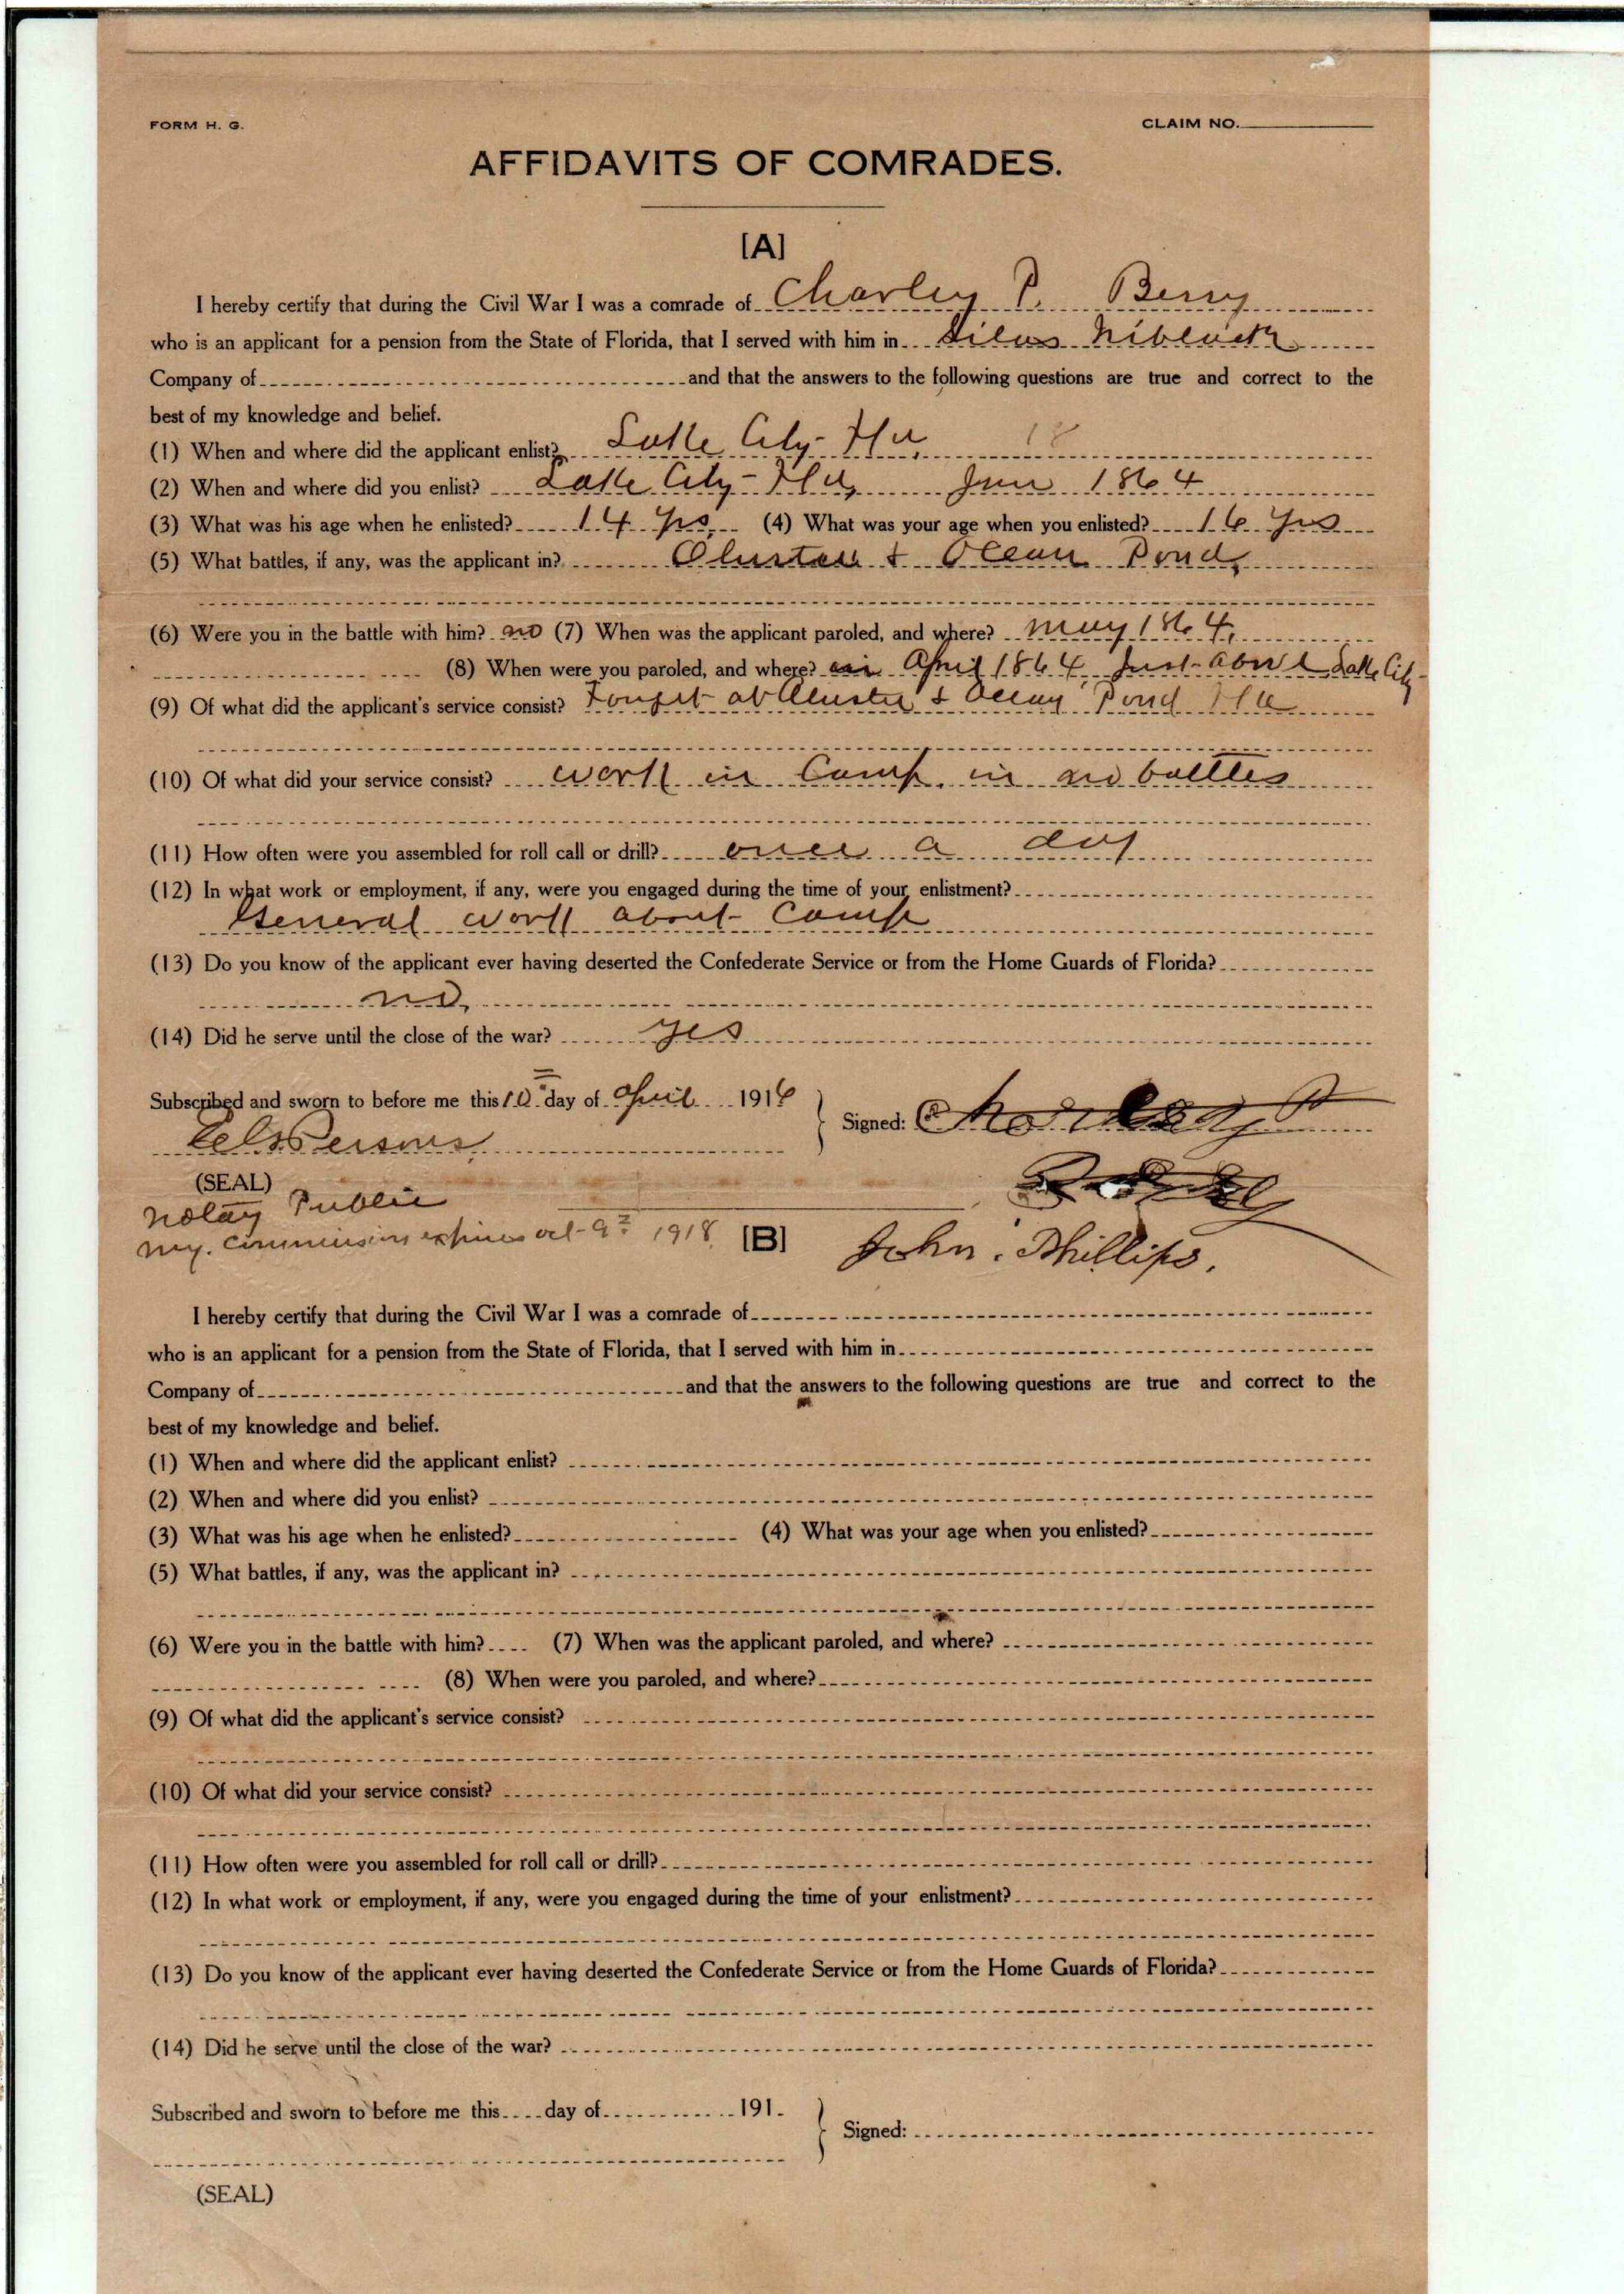 FORM H. G.
CLAIM NO.
AFFIDAVITS OF COMRADES.
[A]
I hereby certify that during the Civil War I was a comrade of Charley P. Berry
who is an applicant for a pension from the State of Florida, that I served with him in Silas Niblack
Company of and that the answers to the following questions are true and correct to the
best of my knowledge and belief.
(1) When and where did the applicant enlist? Lake City- Fla, 18
(2) When and where did you enlist? Lake City- Fla, Jan 1864
(3) What was his age when he enlisted? 14 yrs, (4) What was your age when you enlisted? 16 yrs
(5) What battles, if any, was the applicant in? Olustee & Ocean Pond,
(6) Were you in the battle with him? no (7) When was the applicant paroled, and where? may 1864,
(8) When were you paroled, and where? April 1864 Just above Lake City-
(9) Of what did the applicant's service consist? Fought at Olustee & Ocean Pond Fla
(10) Of what did your service consist? work in Camp. in no battles
(11) How often were you assembled for roll call or drill? once a day
(12) In what work or employment, if any, were you engaged during the time of your enlistment?
General work about Camp
(13) Do you know of the applicant ever having deserted the Confederate Service or from the Home Guards of Florida?
no,
(14) Did he serve until the close of the war? yes
Subscribed and sworn to before me this 10" day of April 1916
Signed: Charley P
Persons
(SEAL)
Notary Public
my. commission expires oct-9 1918
[B]
John Phillips.
I hereby certify that during the Civil War I was a comrade of
who is an applicant for a pension from the State of Florida, that I served with him in
Company of and that the answers to the following questions are true and correct to the
best of my knowledge and belief.
(1) When and where did the applicant enlist?
(2) When and where did you enlist?
(3) What was his age when he enlisted? (4) What was your age when you enlisted?
(5) What battles, if any, was the applicant in?
(6) Were you in the battle with him? (7) When was the applicant paroled, and where?
(8) When were you paroled, and where?
(9) Of what did the applicant's service consist?
(10) Of what did your service consist?
(11) How often were you assembled for roll call or drill?
(12) In what work or employment, if any, were you engaged during the time of your enlistment?
(13) Do you know of the applicant ever having deserted the Confederate Service or from the Home Guards of Florida?
(14) Did he serve until the close of the war?
Subscribed and sworn to before me this day of 191
Signed:
(SEAL)